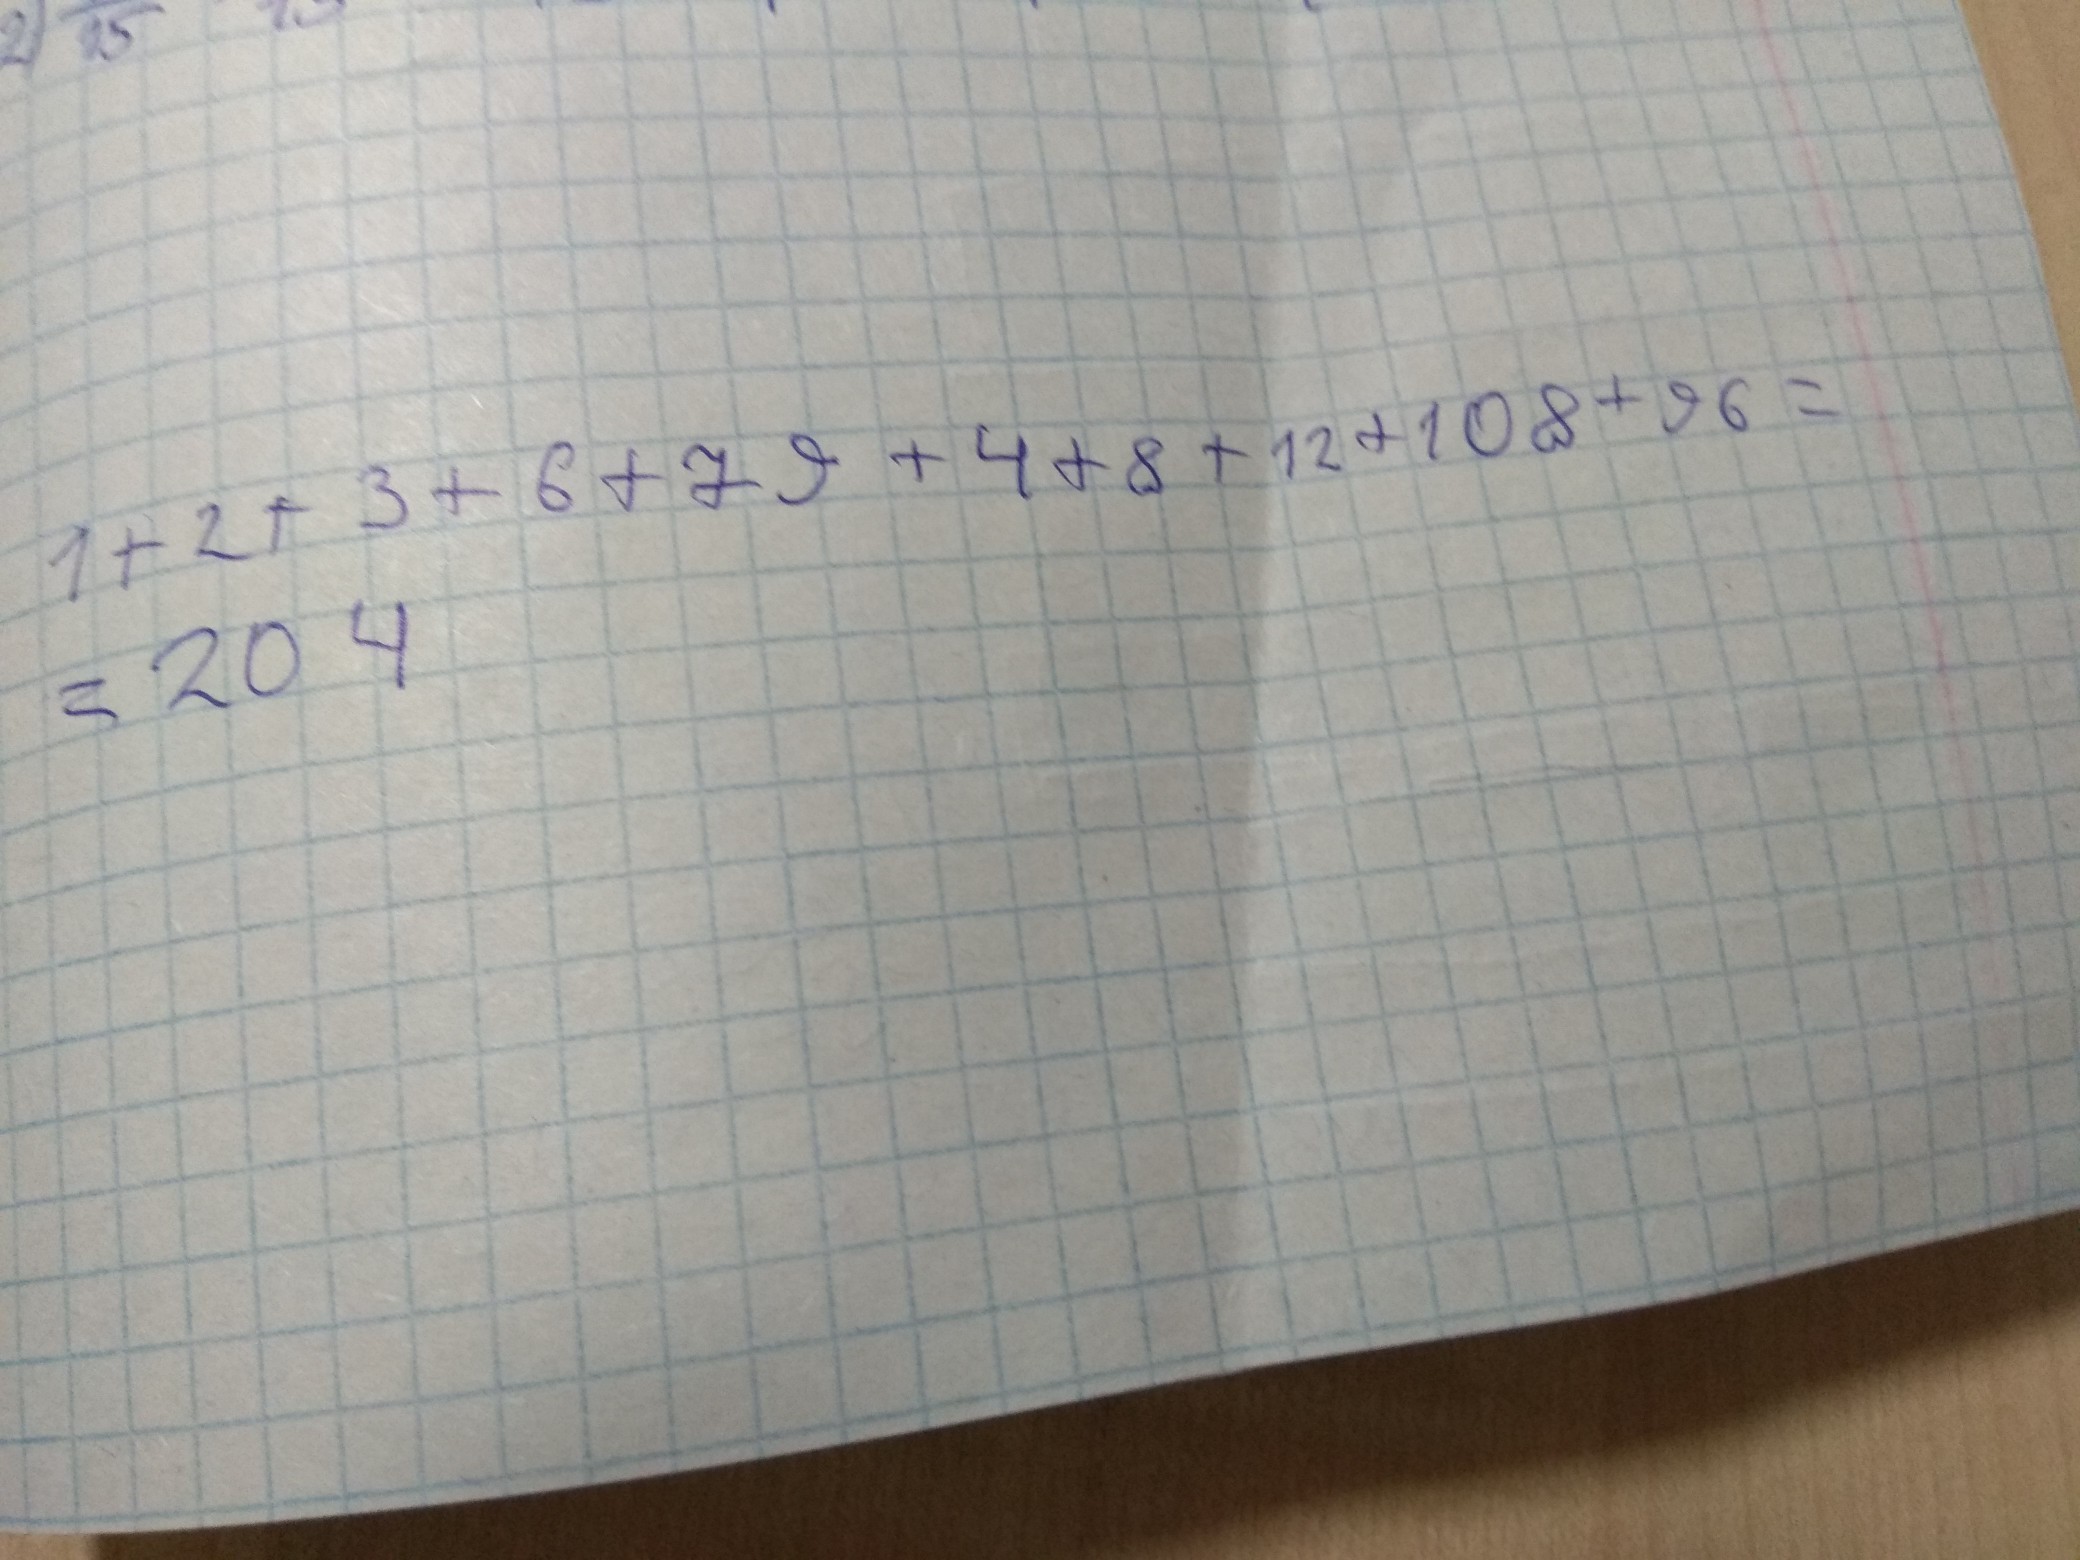 2) 15
1+2+3+6+79+4+8+12+108+96=
=204